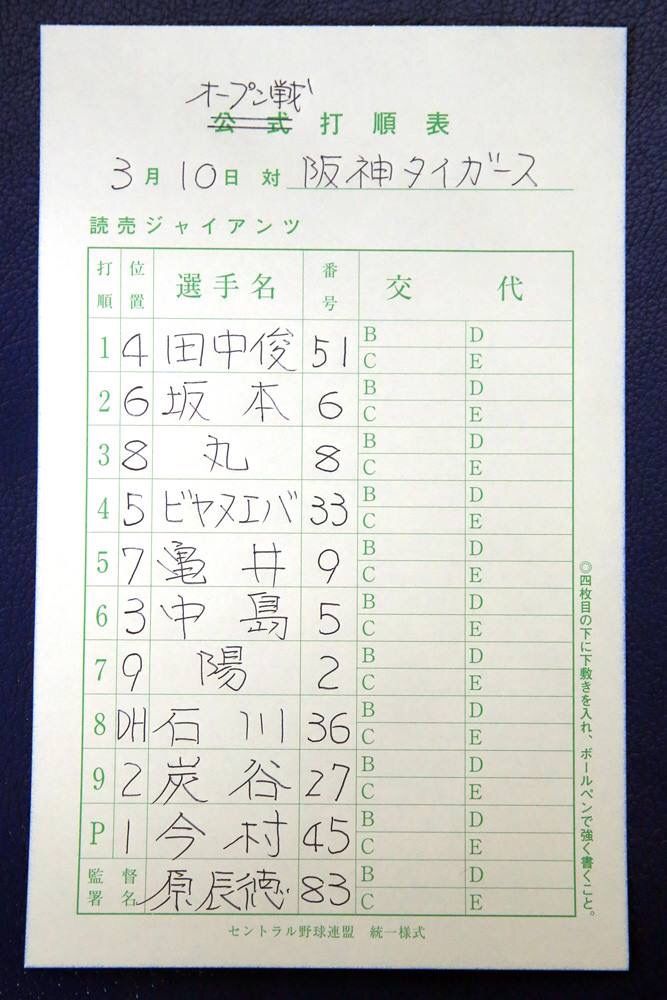 オープン戦
公式打順表
3月10日 対 阪神タイガース
読売ジャイアンツ
打順 位置 選手名 番号 交代
1 4 田中俊 51 B D
C E
2 6 坂本 6 B D
C E
3 8 丸 8 B D
C E
4 5 ビヤヌエバ 33 B D
C E
5 7 亀井 9 B D
C E
6 3 中島 5 B D
C E
7 9 陽 2 B D
C E
8 DH 石川 36 B D
C E
9 2 炭谷 27 B D
C E
P 1 今村 45 B D
C E
監督署名 原辰徳 83 B D
C E
◎四枚目の下に下敷きを入れ、ボールペンで強く書くこと。
セントラル野球連盟 統一様式